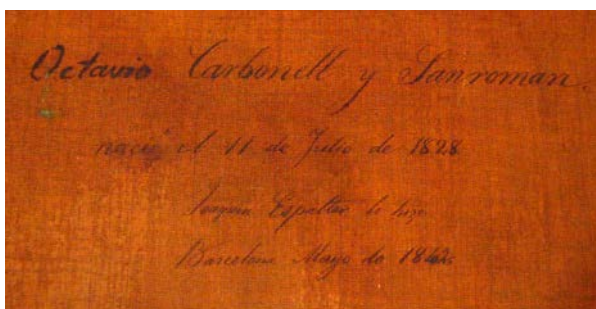 Octavio Carbonell y Sanroman.
nació el 11 de Julio de 1828
Joaquin Espalter lo hizo
Barcelona Mayo de 1842